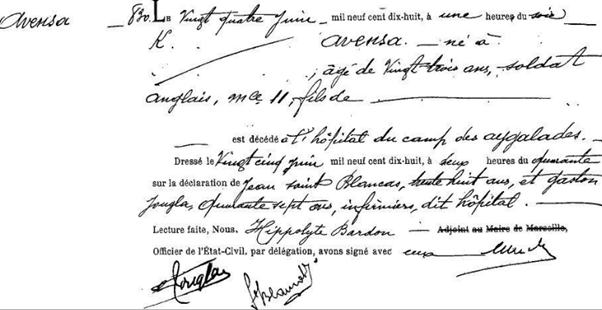 Avensa
830. Le Vingt quatre Juin mil neuf cent dix-huit, à une heures du soir
K. Avensa. né à
, âgé de Vingt trois ans, soldat
anglais, mle 11, fils de
est décédé à l'hôpital du camp des aygalades.
Dressé le Vingt cinq Juin mil neuf cent dix-huit, à deux heures du quarante
sur la déclaration de Jean Saint Blancas, trente huit ans, et gaston
Jougla, Quarante sept ans, infirmiers, dit hôpital.
Lecture faite, Nous, Hippolyte Bardon Adjoint au Maire de Marseille,
Officier de l'État-Civil, par délégation, avons signé avec eux
Jougla
St Blancas